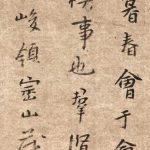 暮春會于會
禊事也羣賢
峻領崇山茂